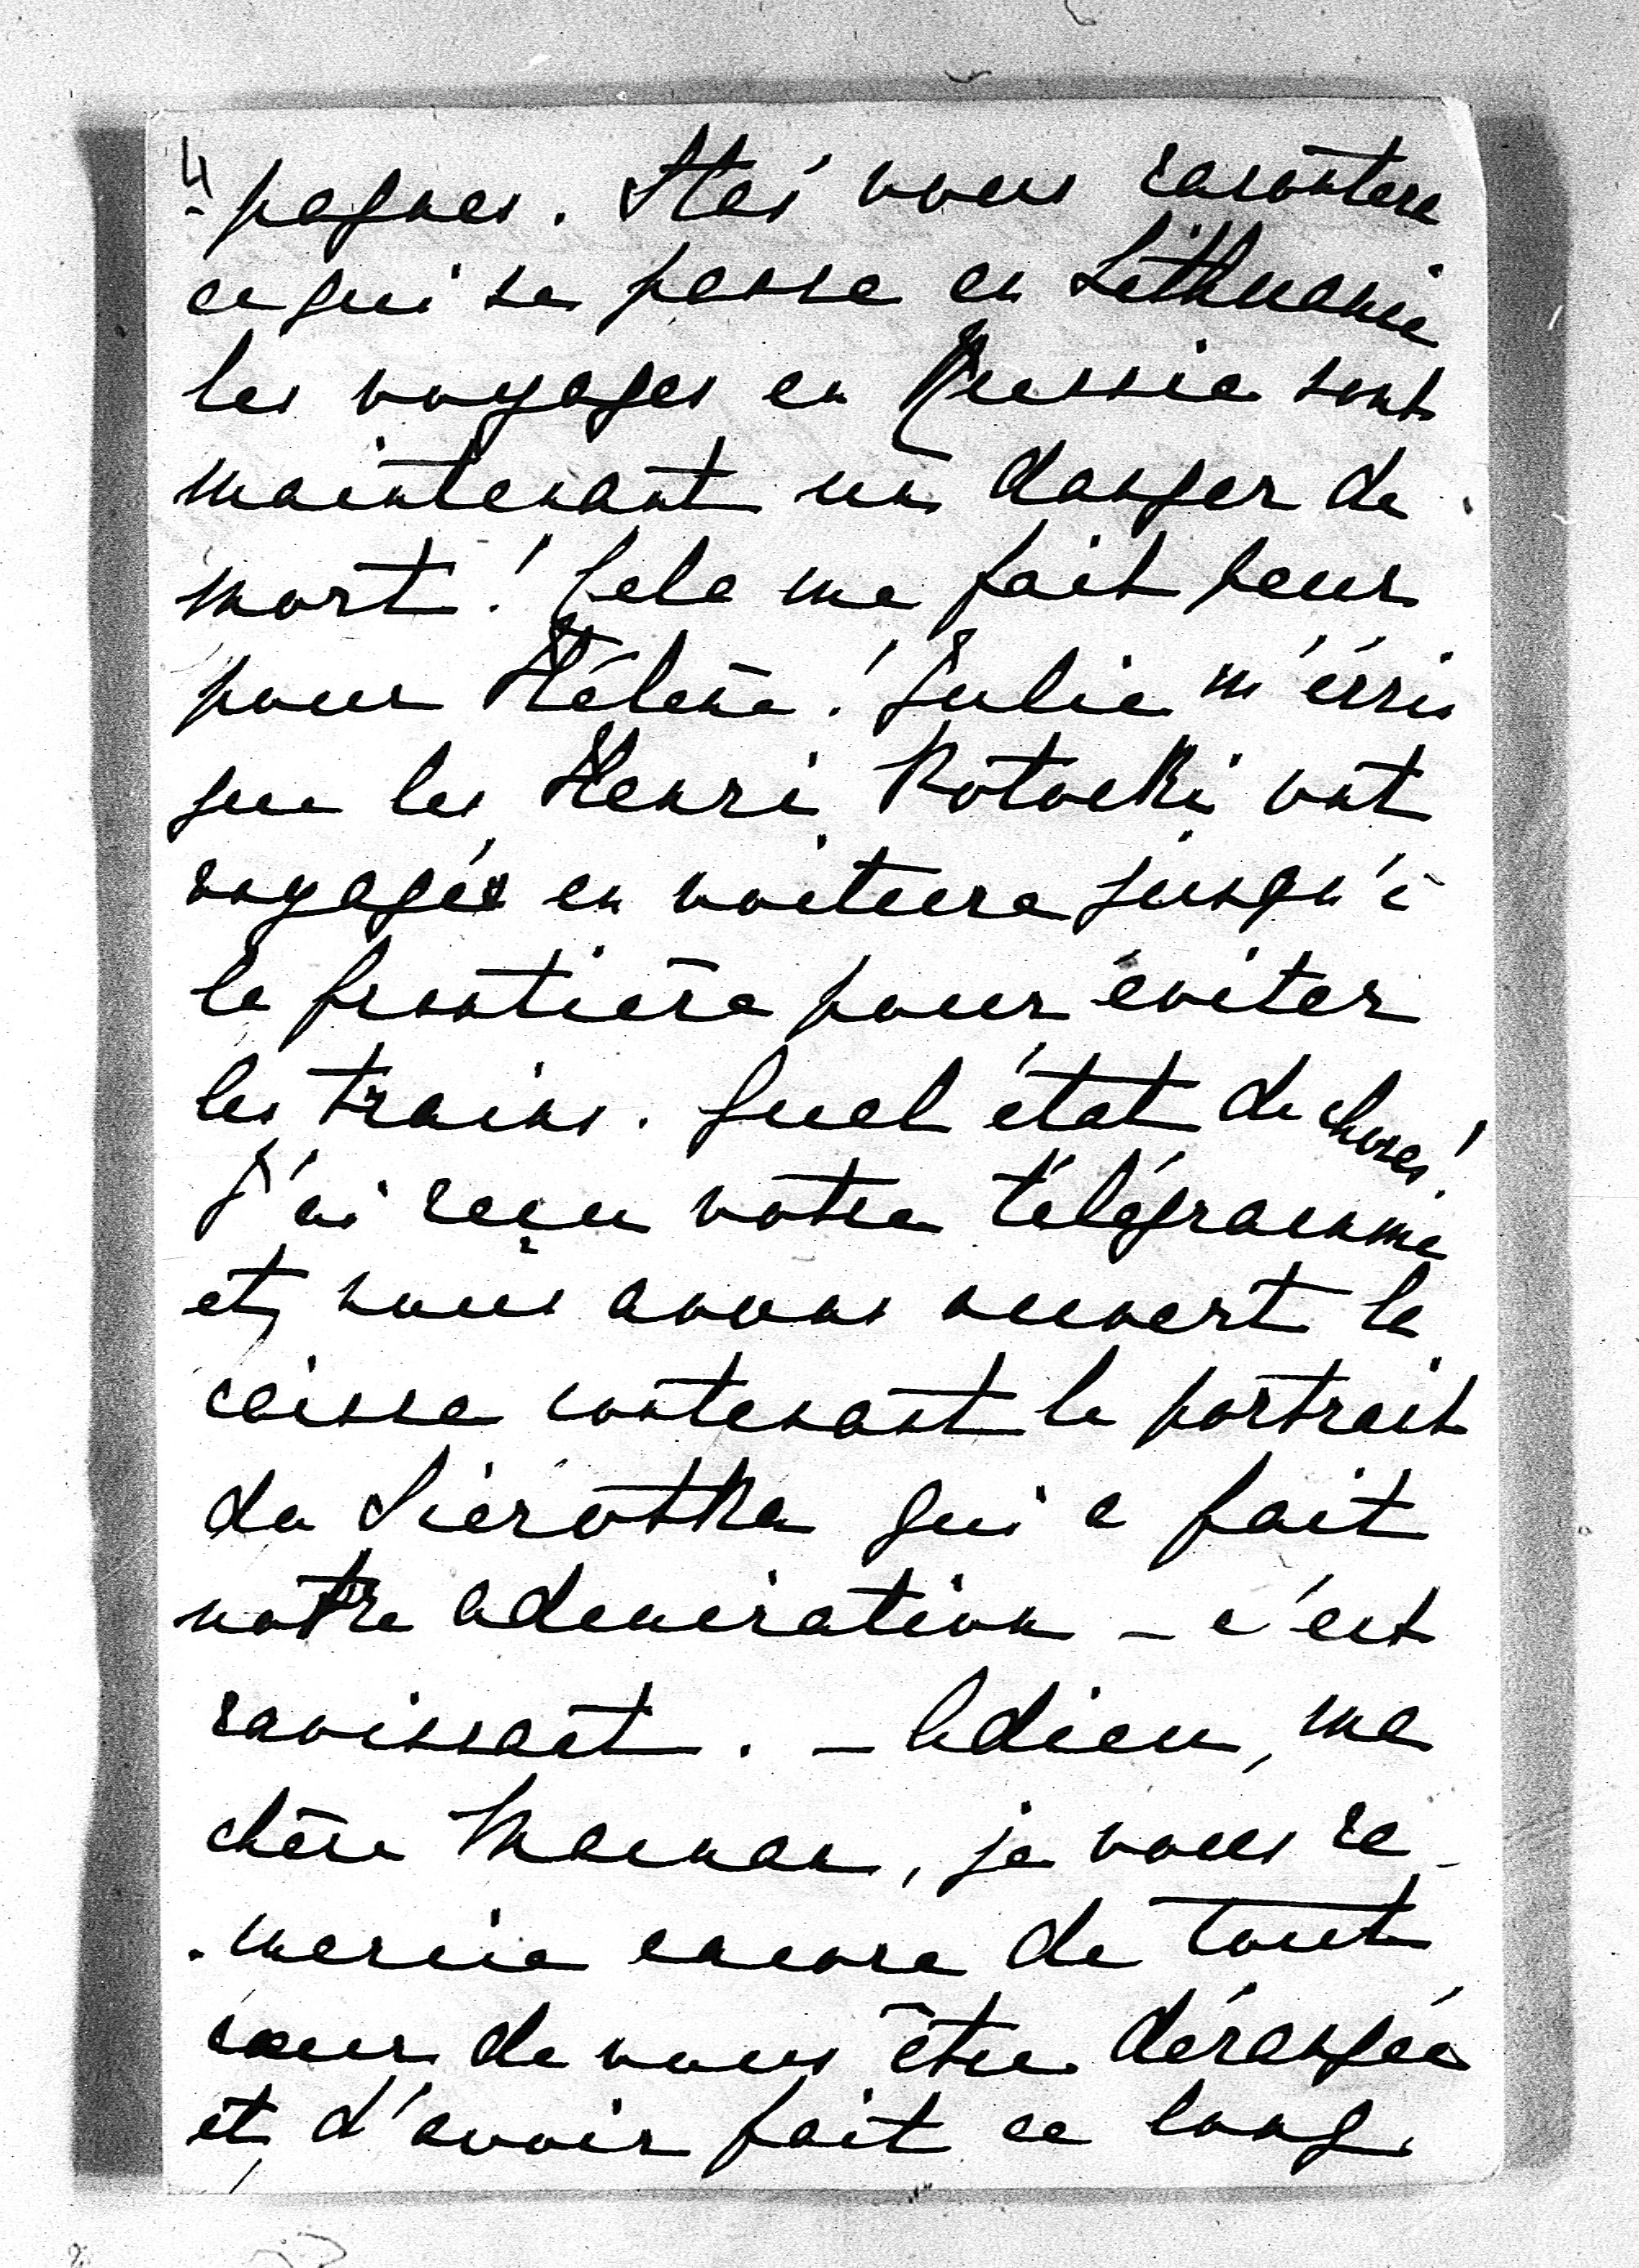 4
-pagnes. Staś vous racontera
ce qui se passe en Lithuanie
les voyages en Russie sont
maintenant un danger de
mort! Cela me fait peur
pour Hélène! Julie m'écris
que les Henri Potocki ont
voyagés en voiture jusqu'à
la frontière pour éviter
les trains. Quel état de choses!
J'ai reçu votre télégramme
et nous avons ouvert la
caisse contenant le portrait
de Sierotka qui a fait
notre admiration – c'est
ravissant. – Adieu, ma
chère Maman, je vous re-
-mercie encore de tout
cœur de vous être dérangée
et d'avoir fait ce long